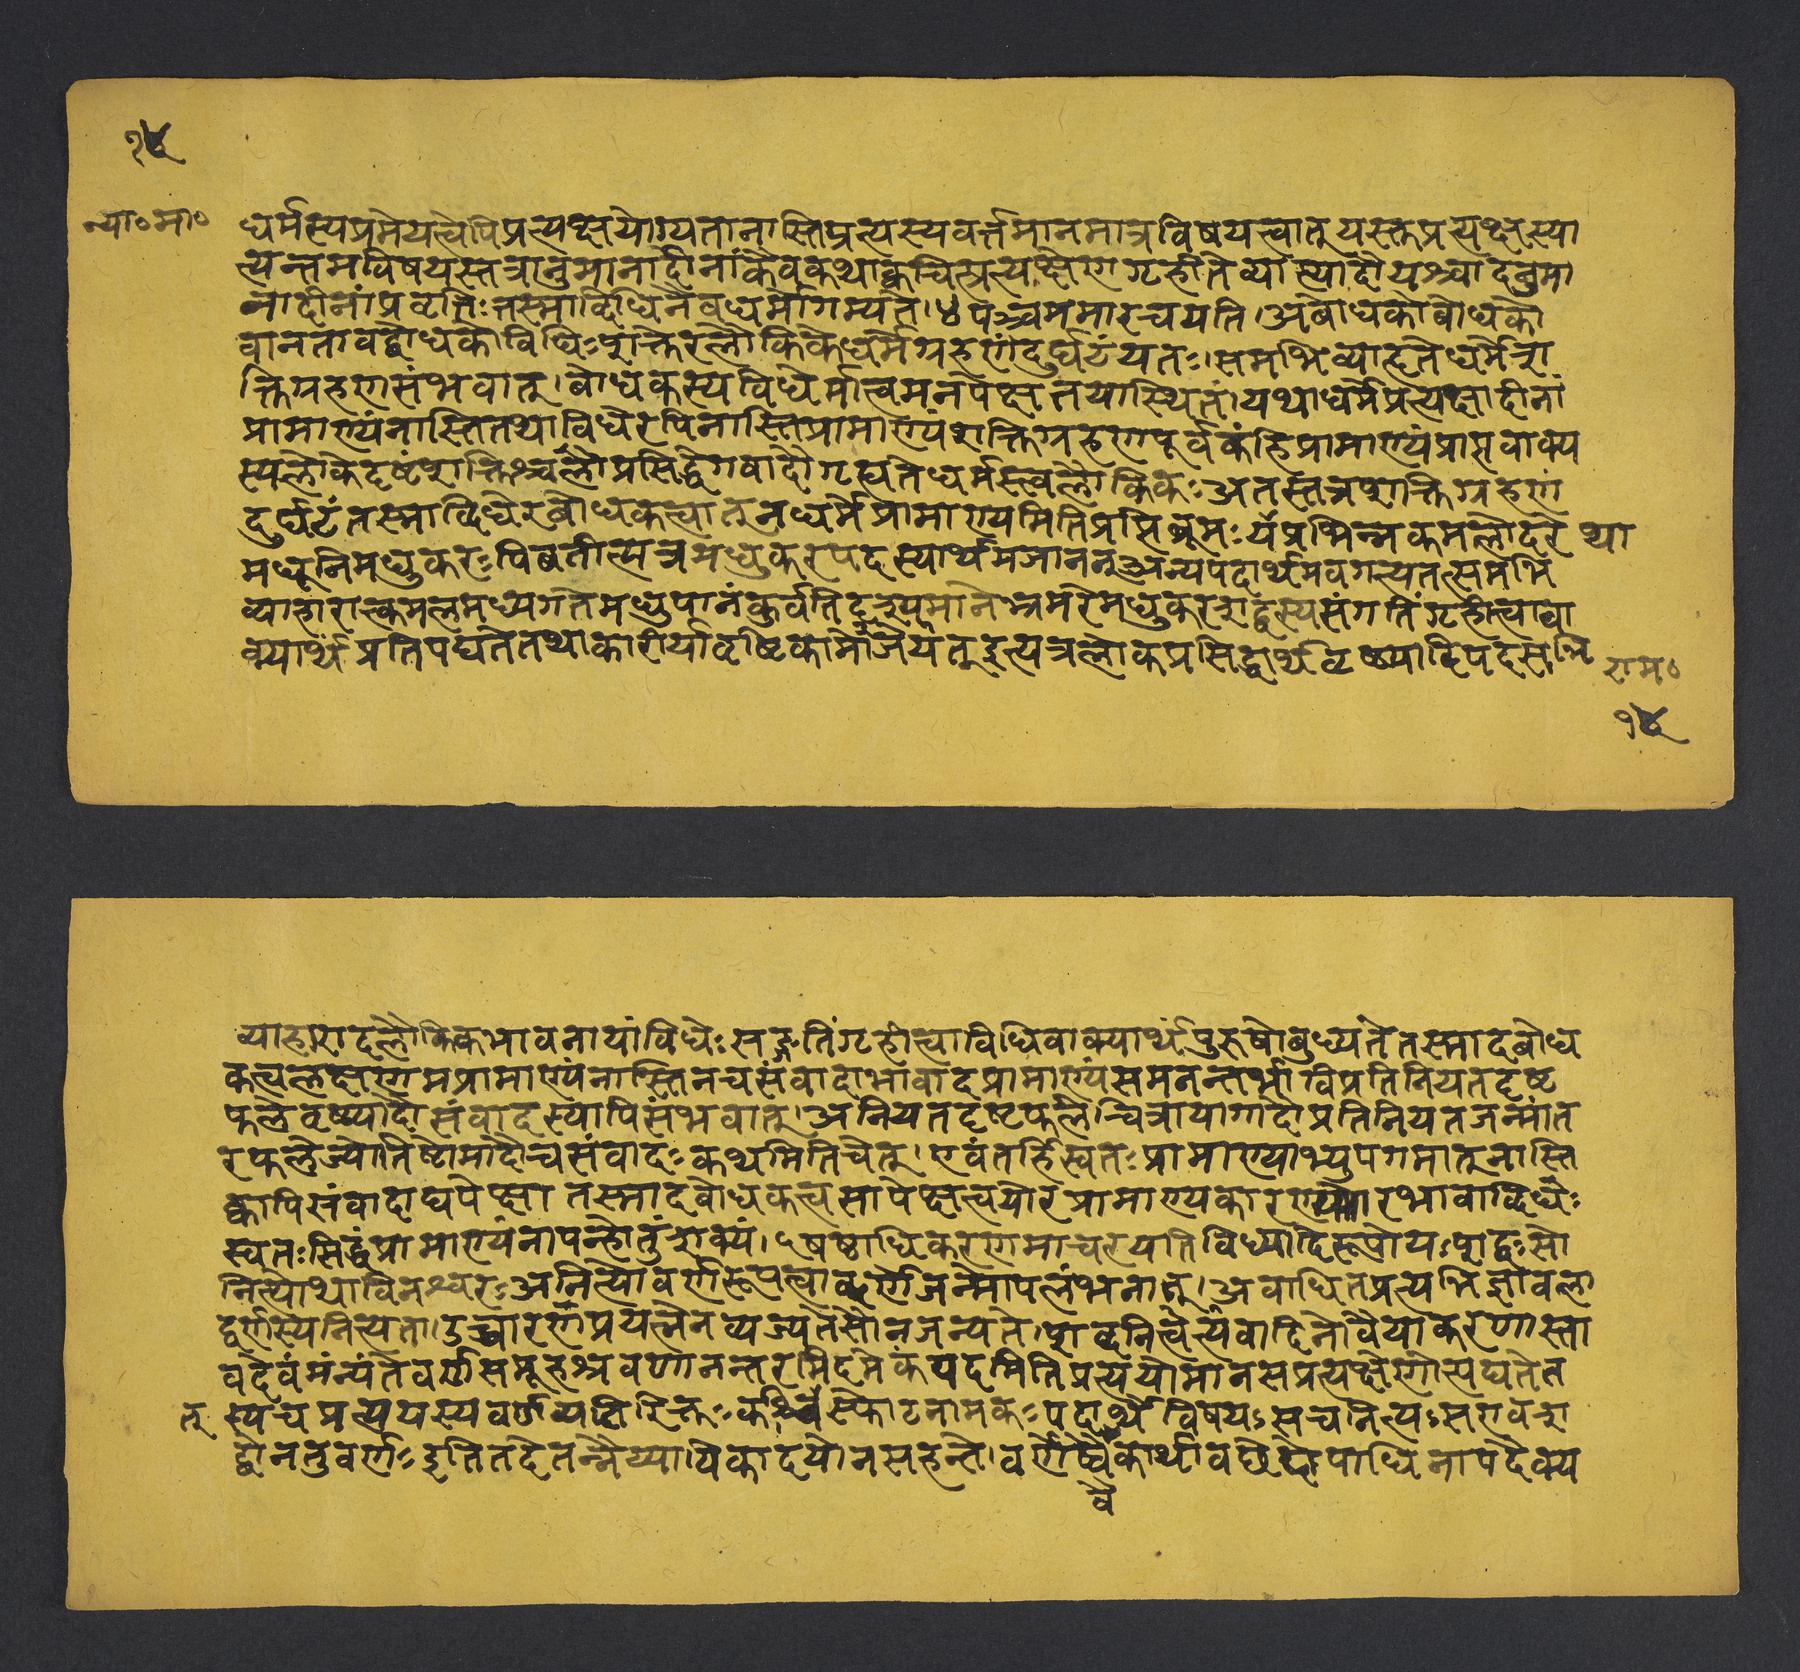 १४
न्या॰मा॰
धर्मस्यप्रमेयत्वेपिप्रत्यक्षयोग्यतानास्तिप्रत्यस्यवर्त्तमानमात्रविषयत्वात् यस्तुप्रत्यक्षस्या
त्यन्तमविषयस्तत्रानुमानादीनांकैवकथाक्वचित्प्रत्यक्षेणगृहीतेव्याप्त्यादौयश्चादनुमा
नादीनांप्रवृत्तिःतस्माद्विधिनैवधर्मोगम्यते।४पञ्चममारचयति।अबोधकोबोधको
वानतावद्बोधकोविधिःशक्तेरलौकिकेधर्मेग्रहणंदुर्घटंयतः।समभिव्याहृतेधर्मेश
क्तिग्रहणसंभवात्।बोधकस्यविधेर्मात्वमनपेक्षतयास्थितं।यथाधर्मेप्रत्यक्षादीनां
प्रामाण्यंनास्तितथाविधेरपिनास्तिप्रामाण्यंशक्तिग्रहणपूर्वकंहिप्रामाण्यंप्राप्तवाक्य
स्यलोकेदृष्टंशक्तिश्चलोप्रसिद्धेगवादौगृह्यतेधर्मस्त्वलौकिकःअतस्तत्रशक्तिग्रहणं
दुर्घटंतस्माद्विधेरबोधकत्वात् नधर्मेप्रामाण्यमितिप्रप्तिब्रूमःयप्रभिन्नकमलोदरे था
मधूनिमधुकरःपिबतीत्यत्रमधुकरपदस्यार्थमजानन् अन्यपदार्थमवगत्यतत्समभि
व्याहारात्कमलमध्यगतेमधुपानंकुर्वतिदृश्यमानेभ्रमरेमधुकरशब्दस्यसंगतिंगृहीत्वावा
क्यार्थंप्रतिपद्यतेतथाकारीर्यावृष्टिकामोजेयत् इत्यत्रलोकप्रसिद्धार्थवृष्ट्यादिपदसभि
राम॰
१४
व्याहारादलौकिकभावनायांविधेःसङ्गतिंगृहीत्वाविधिवाक्यार्थंपुरुषोबुध्यतेतस्मादबोध
कत्वलक्षणमप्रामाण्यंनास्तिनचसंवादाभावादप्रामाण्यंसमनन्तरभाविप्रतिनियतदृष्ट
फलेवृष्ट्यादौसंवादस्यापिसंभवात्।अनियतदृष्टफलेचित्रायागादौप्रतिनियतजन्मांत
रफलेज्योतिष्टोमादौचसंवादःकथमितिचेत्।एवंतर्हिस्वतःप्रामाण्याभ्युपगमात् नास्ति
क्वापिसंवादाद्यपेक्षा तस्मादबोधकत्वसापेक्षत्वयोरप्रामाण्यकारणयोरभावाद्विधेः
स्वतःसिद्धंप्रामाण्यंनापन्होतुंशक्यं।५षष्ठाधिकरणमाचरयतिविध्यादिरूपोयःशब्दःसो
नित्योथाविनश्वरःअनित्योवर्णरूपत्वाद्वर्णेजन्मोपलंभनात्।अबाधितप्रत्यभिज्ञाबला
द्वर्णस्यनित्यता।उच्चारणप्रयत्नेनव्यज्यतेसौनजन्यते।शब्दनित्वेत्यंवादिनोवैयाकरणास्ता
वदेवंमंन्यंतेवर्णसमूहश्रवणानन्तरमिदमेकंपदमितिप्रत्ययोमानसप्रत्यक्षेणोत्पद्यतेत
त् स्यचप्रत्ययस्यवर्णव्यतिरिक्तःकश्चित्स्फोटनामकःपदार्थोविषयःसचनित्यःसएवश
ब्दोनतुवर्णःइतितदेतन्नैय्यायिकादयोनसहन्ते।वर्णेष्वेकार्थावछेदोपाधिनापदैक्य
वै